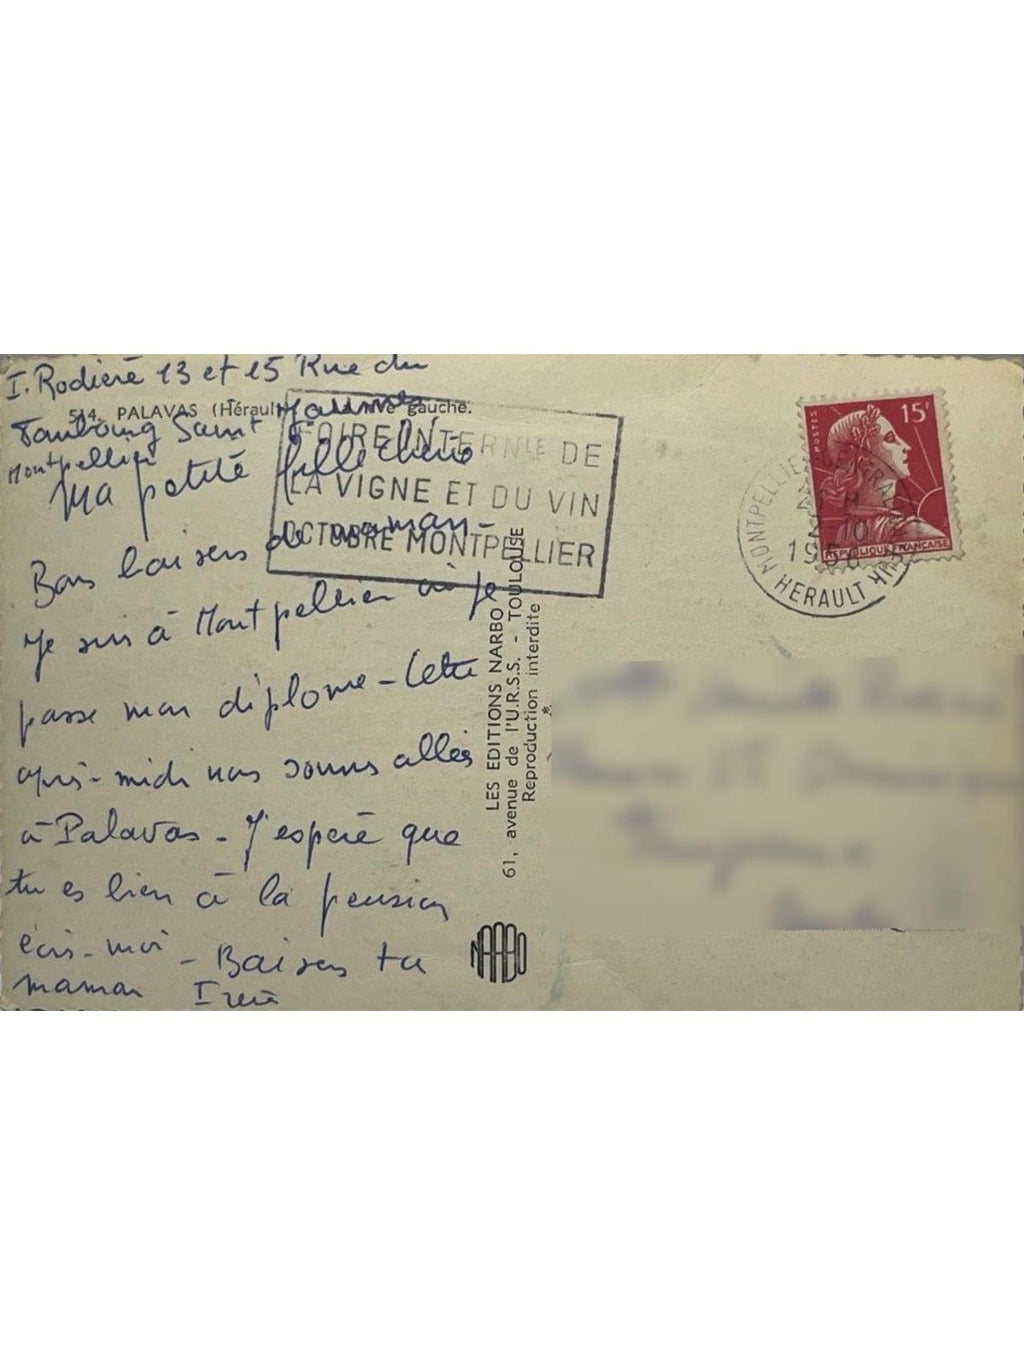 I. Rodière 13 et 15 Rue du
Faubourg Saint Jaumes
Montpellier
514. PALAVAS (Hérault) rive gauche.
Ma petite fille chérie
Bons baisers de maman -
Je suis à Montpellier où je
passe mon diplome - Cette
après-midi nous sommes allés
à Palavas - J'espère que
tu es bien à la pension
écris-moi - Baisers ta
maman Irène
FOIRE INTERNLE DE
LA VIGNE ET DU VIN
OCTOBRE MONTPELLIER
LES EDITIONS NARBO
61, avenue de l'U.R.S.S. - TOULOUSE
Reproduction interdite
NARBO
POSTES
15F
REPUBLIQUE FRANÇAISE
MONTPELLIER CENTRAL
HERAULT